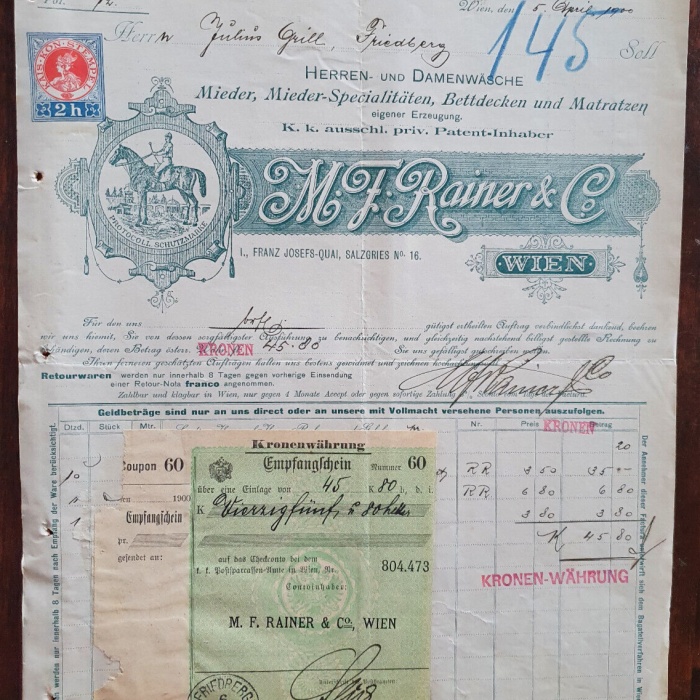 Fol. 12.
Wien, den 5. April 1900
145
Herrn Julius Grill, Friedberg
Soll
KAIS·KÖN·STEMPEL
2 h
HERREN- UND DAMENWÄSCHE
Mieder, Mieder-Specialitäten, Bettdecken und Matratzen
eigener Erzeugung.
K. k. ausschl. priv. Patent-Inhaber
M. F. Rainer & Co
PROTOCOLL SCHUTZMARKE
I., FRANZ JOSEFS-QUAI, SALZGRIES No. 16.
WIEN
Für den uns gütigst ertheilten Auftrag verbindlichst dankend, beehren
wir uns hiemit, Sie von dessen sorgfältigster Ausführung zu benachrichtigen, und gleichzeitig nachstehend billigst gestellte Rechnung zu
behändigen, deren Betrag österr. KRONEN 45.80 Sie uns gefälligst gutschreiben wollen.
Ihren ferneren geschätzten Aufträgen halten uns bestens gewidmet und zeichnen
Retourwaren werden nur innerhalb 8 Tagen gegen vorherige Einsendung
einer Retour-Nota franco angenommen.
M F Rainer & Co
Zahlbar und klagbar in Wien, nur gegen 4 Monate Accept oder gegen sofortige Zahlung
Geldbeträge sind nur an uns direct oder an unsere mit Vollmacht versehene Personen auszufolgen.
Dtzd. Stück Mtr. Nr. Preis KRONEN
20
10 RR 3 50 35 —
1 RR 6 80 6 80
3 80 3 80
K 45 80
KRONEN-WÄHRUNG
Kronenwährung
Coupon 60
Empfangschein Nummer 60
über eine Einlage von 45 K 80 h, d. i.
1900
K Vierzigfünf u 80 heller
Empfangschein
pr.
gesendet an:
auf das Checkconto bei dem
k. k. Postsparcassen-Amte in Wien, Nr. 804.473
Contoinhaber:
M. F. RAINER & Co., WIEN
FRIEDBERG
6